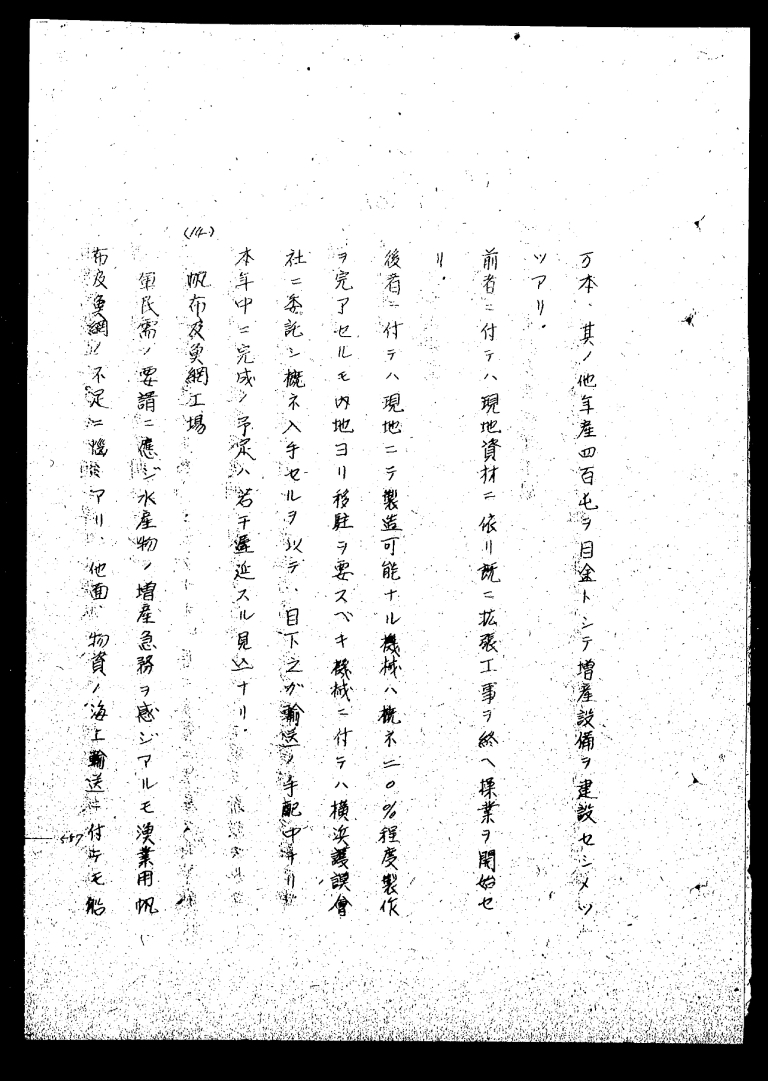 万本、其ノ他年産四百屯ヲ目金トシテ増産設備ヲ建設セシメツ
ツアリ．
前者ニ付テハ現地資材ニ依リ既ニ拡張工事ヲ終ヘ操業ヲ開始セ
リ．
後者ニ付テハ現地ニテ製造可能ナル機械ハ概ネ二〇％程度製作
ヲ完了セルモ内地ヨリ移駐ヲ要スベキ機械ニ付テハ横浜護謨會
社ニ委託シ概ネ入手セルヲ以テ、目下之ガ輸送ノ手配中ナリ
本年中ニ完成ノ予定ハ若干遅延スル見込ナリ．
(14) 帆布及魚網工場
軍民需ノ要請ニ應ジ水産物ノ増産急務ヲ感ジアルモ漁業用帆
布及魚網ノ不足ニ悩ミアリ、他面、物資ノ海上輸送ニ付テモ船